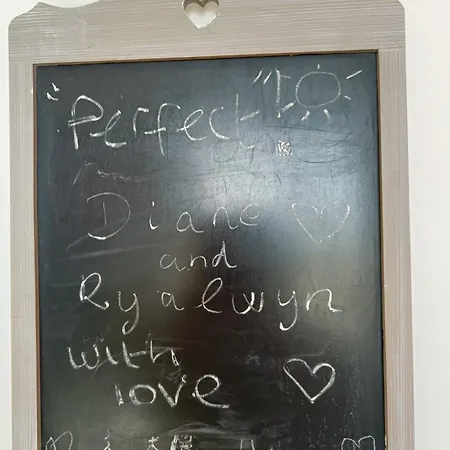 "Perfect"!
Diane
and
Ryalwyn
with
love